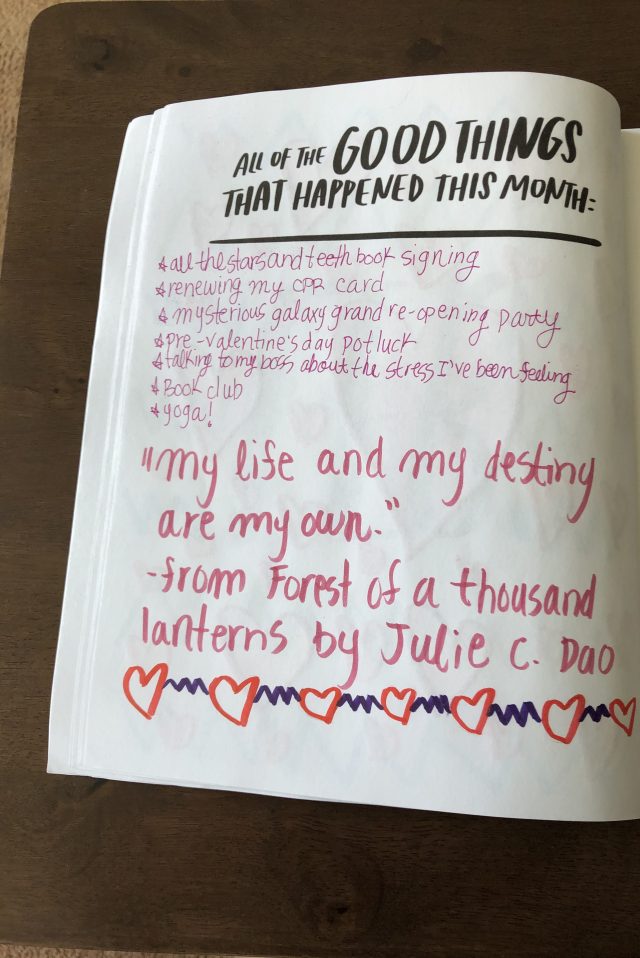 ALL OF THE GOOD THINGS
THAT HAPPENED THIS MONTH:
☆all the stars and teeth book signing
☆renewing my CPR card
☆mysterious galaxy grand re-opening party
☆pre-valentine's day potluck
☆talking to my boss about the stress I've been feeling
☆Book club
☆yoga!
"my life and my destiny
are my own."
-from Forest of a thousand
lanterns by Julie C. Dao